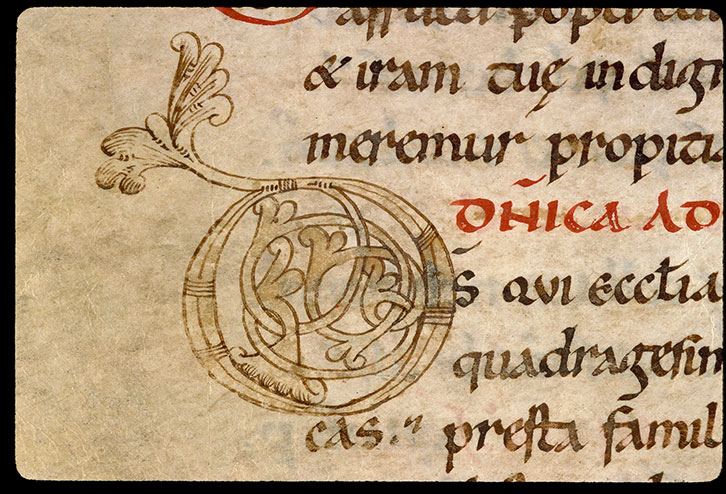 & iram tuę indign
meremur propitia
DÑICA AD
DS̄ QVI ECCL̄IA
quadragesim
cas. presta famil